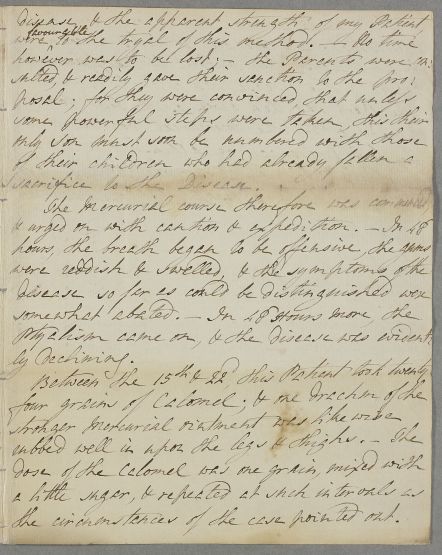 disease, & the apparent strength of my Patient
were favourable to the tryal of this method. — No time
however was to be lost; — the Parents were con
sulted, & readily gave their sanction to the pro
posal; for they were convinced, that unless
some powerful steps were taken, this their
only son must soon be numbered with those
of their children who had already fallen a
sacrifice to the Disease.
The Mercurial course therefore was commenced
& urged on with caution & expedition. — In 48
hours, the breath began to be offensive, the gums
were reddish & swelled, & the symptoms of the
disease so far as could be distinguished were
somewhat abated. — In 28 Hours more, the
Ptyalism came on, & the disease was evident
ly declining.
Between the 15th & 22d, this Patient took twenty
four grains of Calomel; & one drachm of the
stronger Mercurial ointment was likewise
rubbed well in upon the legs & thighs. — The
dose of the Calomel was one grain, mixed with
a little sugar, & repeated at such intervals as
the circumstances of the case pointed out.